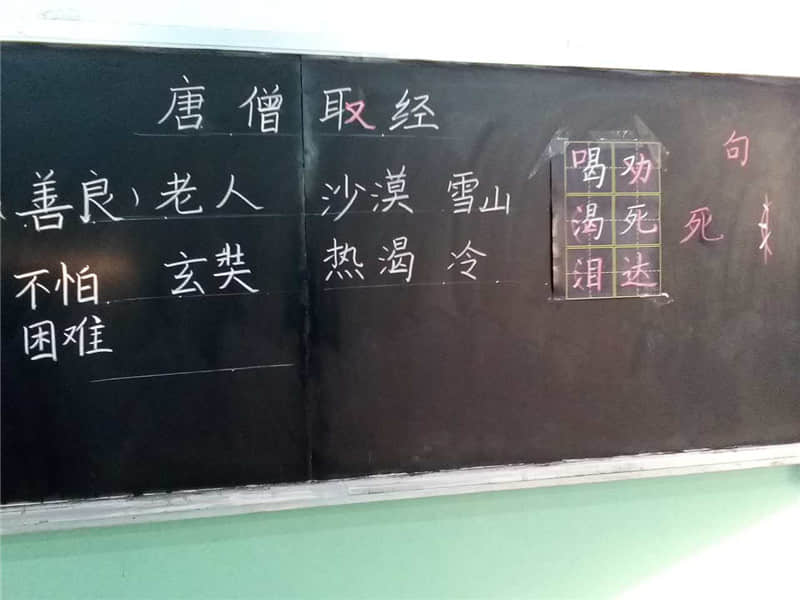 唐僧取经
(善良)老人 沙漠 雪山
不怕 玄奘 热渴 冷
困难
喝劝
渴死
泪达
句
死